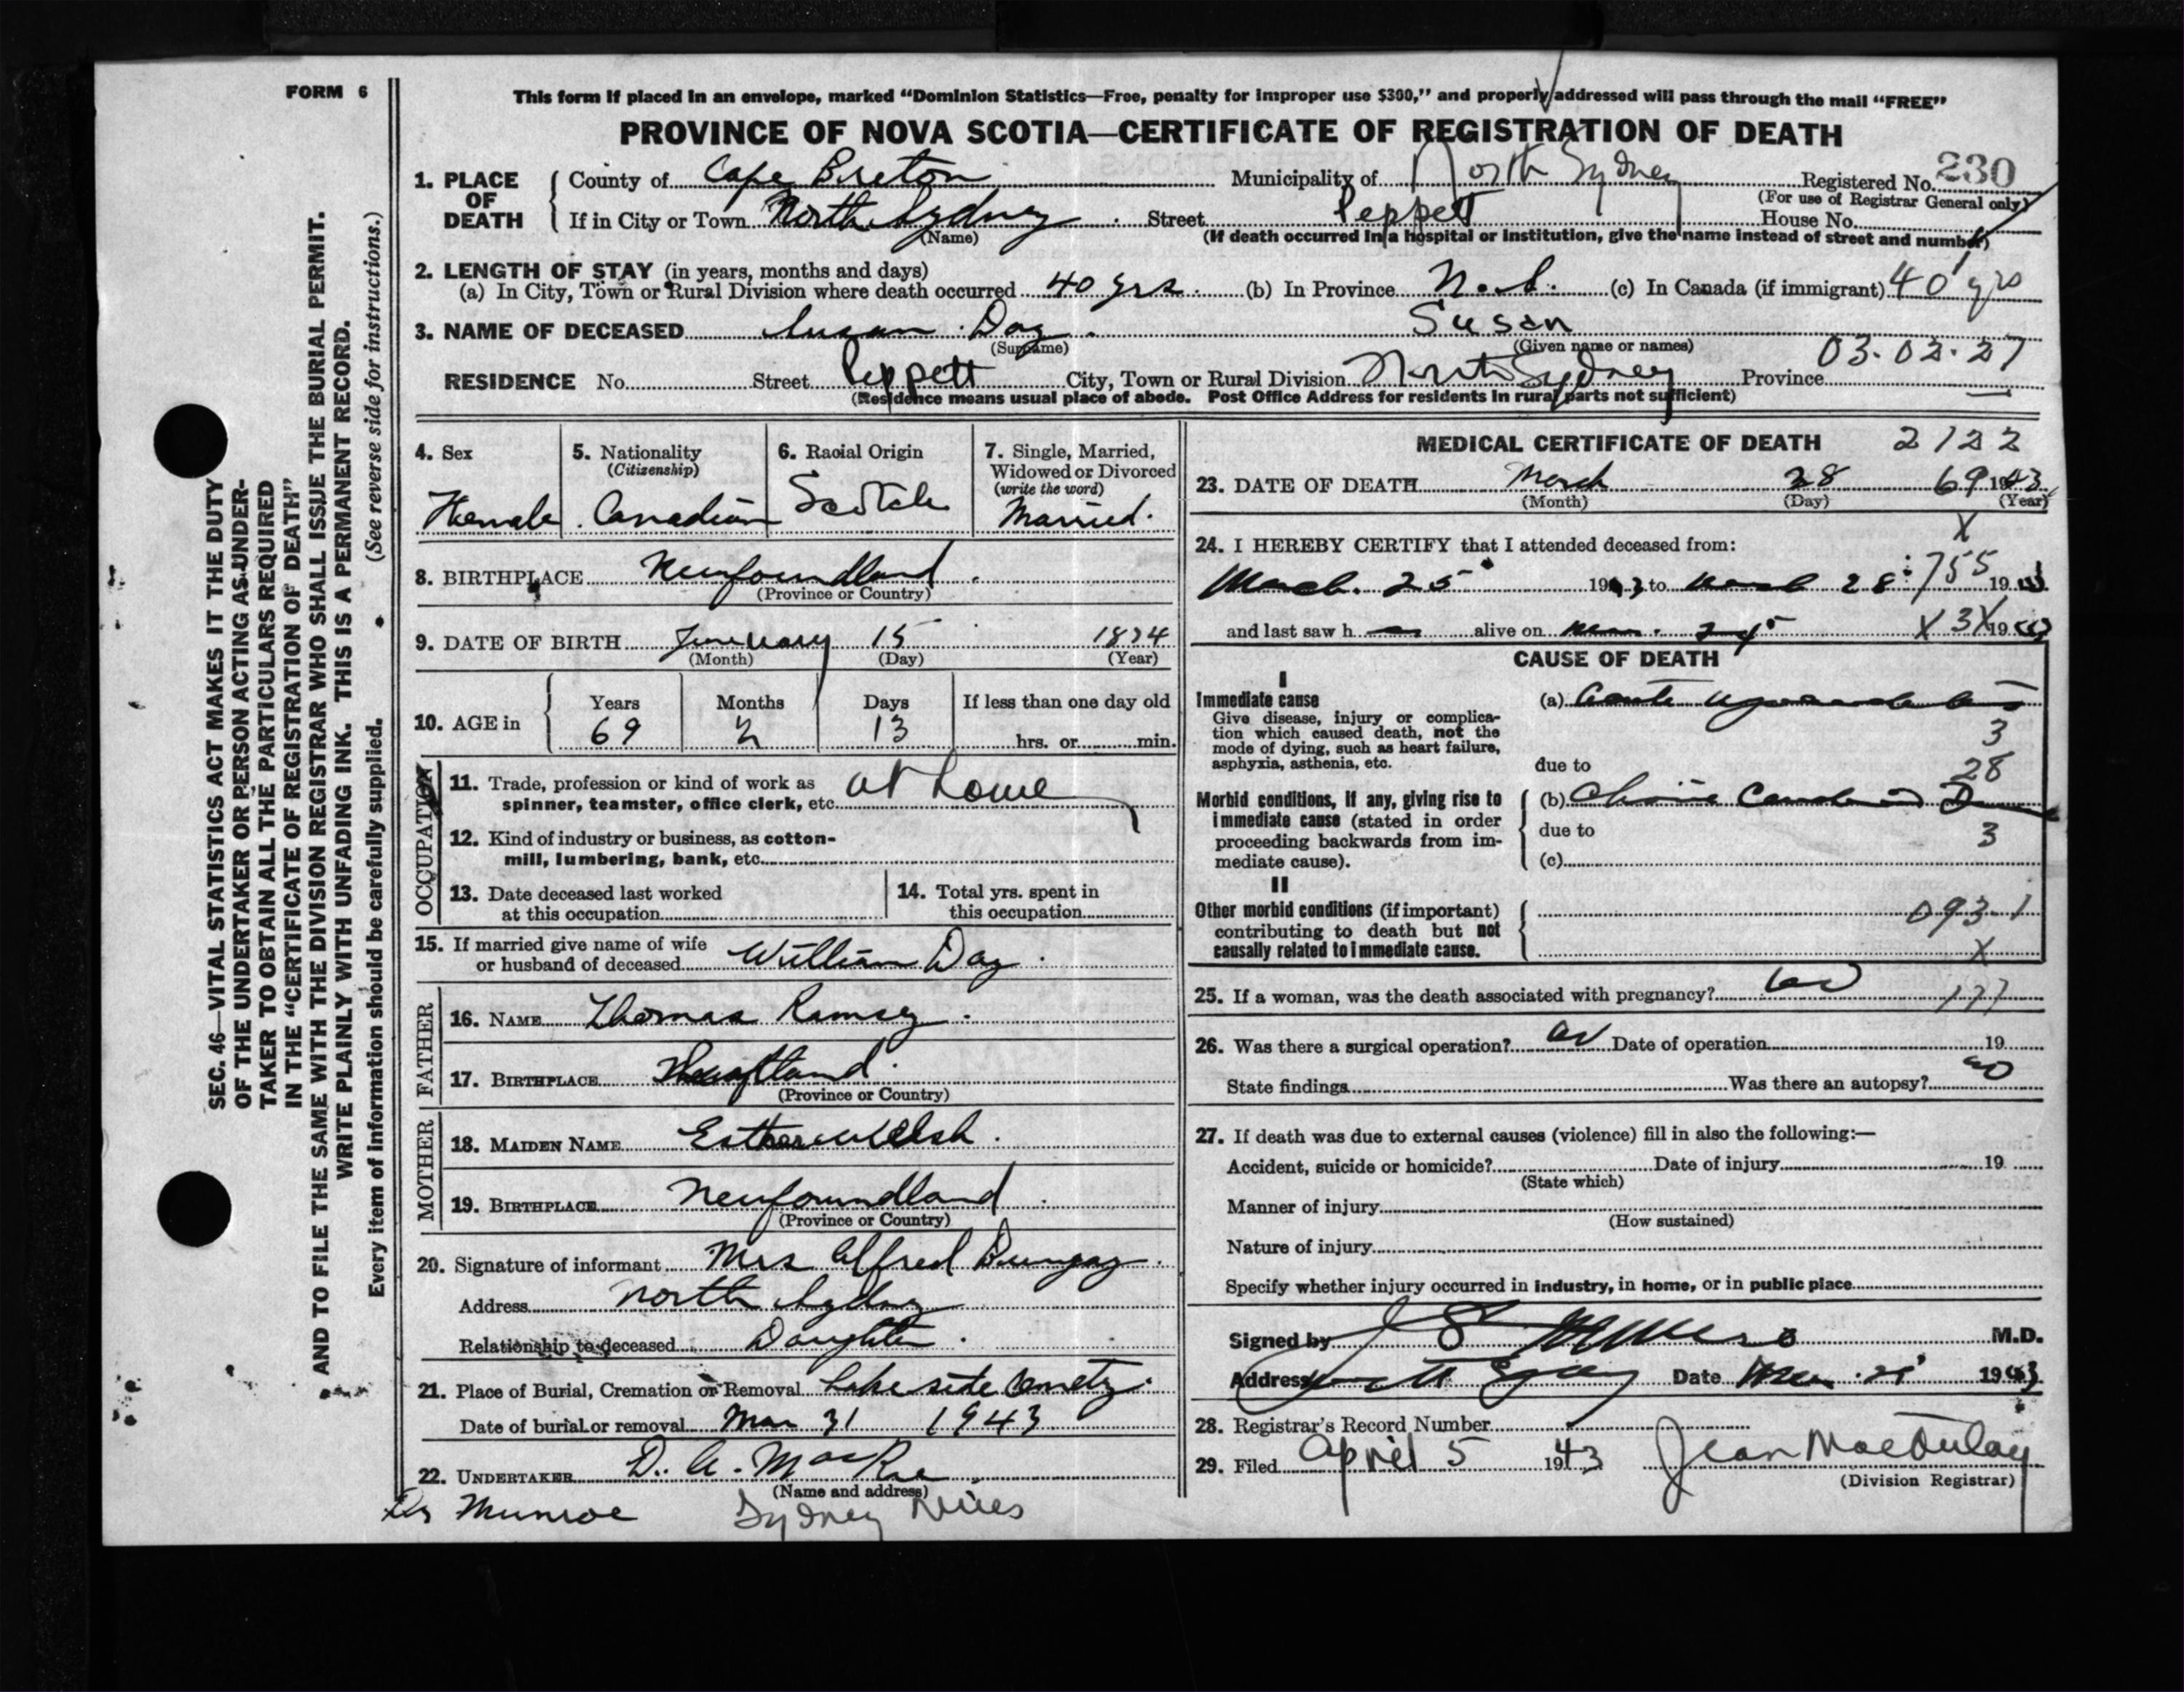 FORM 6
This form if placed in an envelope, marked “Dominion Statistics—Free, penalty for improper use $300,” and properly addressed will pass through the mail “FREE”
PROVINCE OF NOVA SCOTIA—CERTIFICATE OF REGISTRATION OF DEATH
1. PLACE OF DEATH County of Cape Breton Municipality of North Sydney Registered No. 230
(For use of Registrar General only)
If in City or Town North Sydney Street Peppett House No.
(Name) (If death occurred in a hospital or institution, give the name instead of street and number)
2. LENGTH OF STAY (in years, months and days)
(a) In City, Town or Rural Division where death occurred 40 yrs. (b) In Province N.S. (c) In Canada (if immigrant) 40 yrs
3. NAME OF DECEASED Susan Day. Susan
(Surname) (Given name or names) 03.02.27
RESIDENCE No. Street Peppett City, Town or Rural Division North Sydney Province
(Residence means usual place of abode. Post Office Address for residents in rural parts not sufficient)
4. Sex
Female
5. Nationality
(Citizenship)
Canadian
6. Racial Origin
Scotch
7. Single, Married,
Widowed or Divorced
(write the word)
Married.
8. BIRTHPLACE Newfoundland.
(Province or Country)
9. DATE OF BIRTH January 15 1874
(Month) (Day) (Year)
10. AGE in Years Months Days If less than one day old
69 2 13 hrs. or min.
OCCUPATION
11. Trade, profession or kind of work as
spinner, teamster, office clerk, etc. at home
12. Kind of industry or business, as cotton-
mill, lumbering, bank, etc.
13. Date deceased last worked
at this occupation
14. Total yrs. spent in
this occupation
15. If married give name of wife
or husband of deceased William Day.
FATHER
16. NAME Thomas Ramsey.
17. BIRTHPLACE
(Province or Country)
MOTHER
18. MAIDEN NAME Esther Welsh.
19. BIRTHPLACE Newfoundland
(Province or Country)
20. Signature of informant Mrs Alfred Bungay.
Address North Sydney
Relationship to deceased Daughter.
21. Place of Burial, Cremation or Removal Lakeside Cemetry.
Date of burial or removal Mar 31 1943
22. UNDERTAKER D. A. MacRae.
(Name and address)
Dr Munroe Sydney Mines
MEDICAL CERTIFICATE OF DEATH 2122
23. DATE OF DEATH March 28 69 1943
(Month) (Day) (Year)
X
24. I HEREBY CERTIFY that I attended deceased from:
March 25 1943 to March 28 755 1943
and last saw h alive on X 3X 1943
CAUSE OF DEATH
I
Immediate cause
Give disease, injury or complica-
tion which caused death, not the
mode of dying, such as heart failure,
asphyxia, asthenia, etc.
(a) Acute
3
due to 28
Morbid conditions, if any, giving rise to
immediate cause (stated in order
proceeding backwards from im-
mediate cause).
(b)
due to 3
(c)
II
Other morbid conditions (if important)
contributing to death but not
causally related to immediate cause.
093-1
X
25. If a woman, was the death associated with pregnancy? no 177
26. Was there a surgical operation? no Date of operation 19
State findings Was there an autopsy? no
27. If death was due to external causes (violence) fill in also the following:—
Accident, suicide or homicide? Date of injury 19
(State which)
Manner of injury
(How sustained)
Nature of injury
Specify whether injury occurred in industry, in home, or in public place
Signed by M.D.
Address Date 1943
28. Registrar's Record Number
29. Filed April 5 1943 Jean MacAulay
(Division Registrar)
SEC. 46—VITAL STATISTICS ACT MAKES IT THE DUTY
OF THE UNDERTAKER OR PERSON ACTING AS UNDER-
TAKER TO OBTAIN ALL THE PARTICULARS REQUIRED
IN THE “CERTIFICATE OF REGISTRATION OF DEATH”
AND TO FILE THE SAME WITH THE DIVISION REGISTRAR WHO SHALL ISSUE THE BURIAL PERMIT.
WRITE PLAINLY WITH UNFADING INK. THIS IS A PERMANENT RECORD.
Every item of information should be carefully supplied. (See reverse side for instructions.)